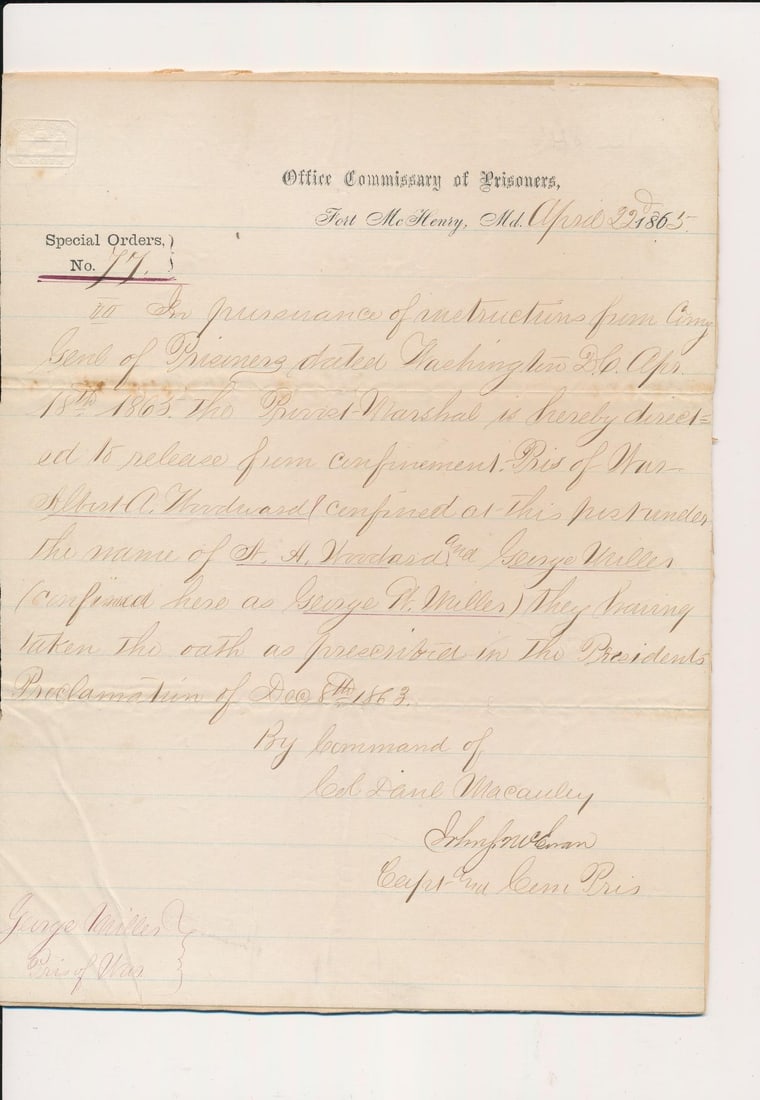 Office Commissary of Prisoners,
Fort McHenry, Md. April 22d 1865.
Special Orders, }
No. 77. }
III In pursuance of instructions from Comy
Genl of Prisoners dated Washington D.C. Apr.
18th 1865. The Provost-Marshal is hereby direct=
ed to release from confinement-Pris of War-
Albert A. Woodward (confined at this post under
the name of A. Woodard and George Miller
(confined here as George W. Miller) they having
taken the oath as prescribed in the Presidents
Proclamation of Dec 8th 1863.
By Command of
Col Danl Macauley
John J. McEwan
Capt and Com Pris
George Miller }
Pris of War }